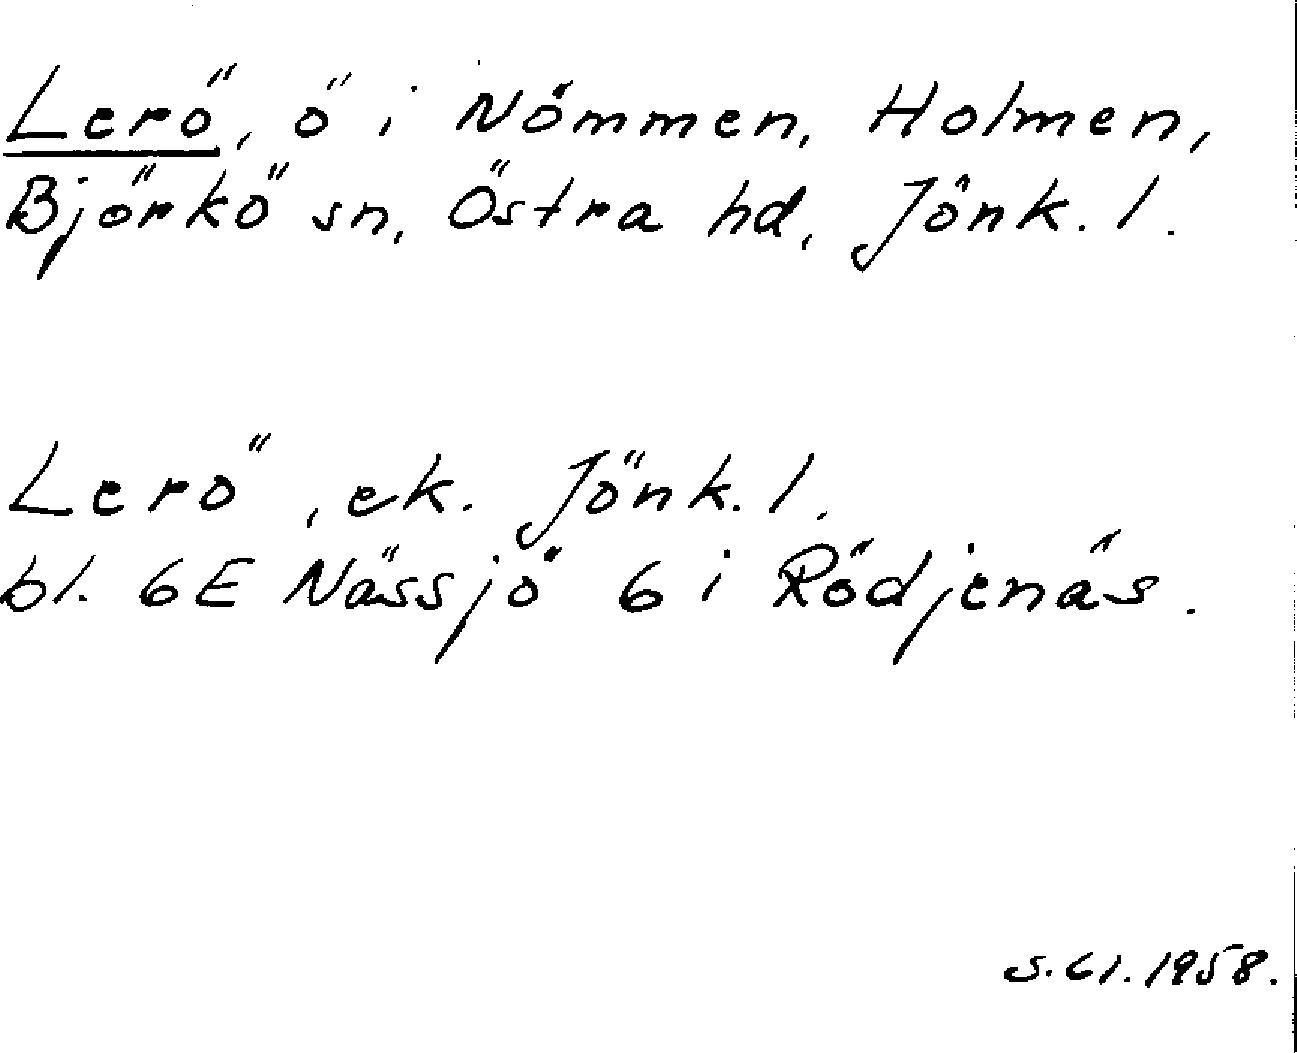 Lerö, ö i Nömmen, Holmen,
Björkö sn, Östra hd, Jönk. l.
Lerö, ek. Jönk. l.
bl. 6E Nässjö 6 i Rödjenäs.
S. Cl. 1958.